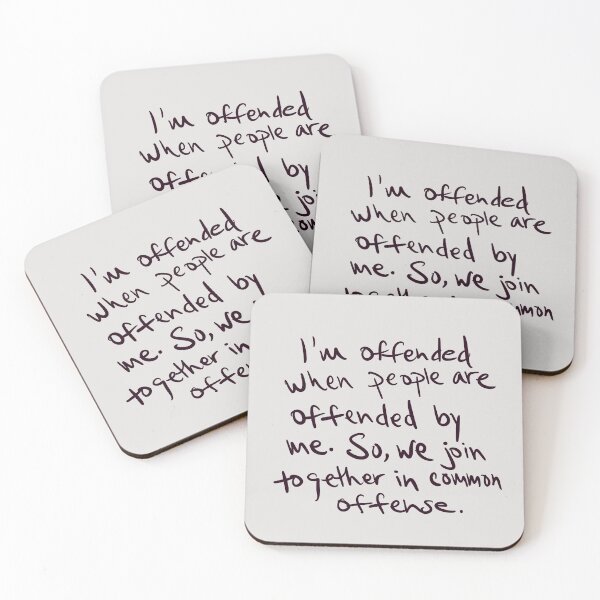 I'm offended
when people are
by
I'm offended
when people are
offended by
me. So, we join
together in common
I'm offended
when people are
offended by
me. So, we
together in
I'm offended
when people are
offended by
me. So, we join
together in common
offense.